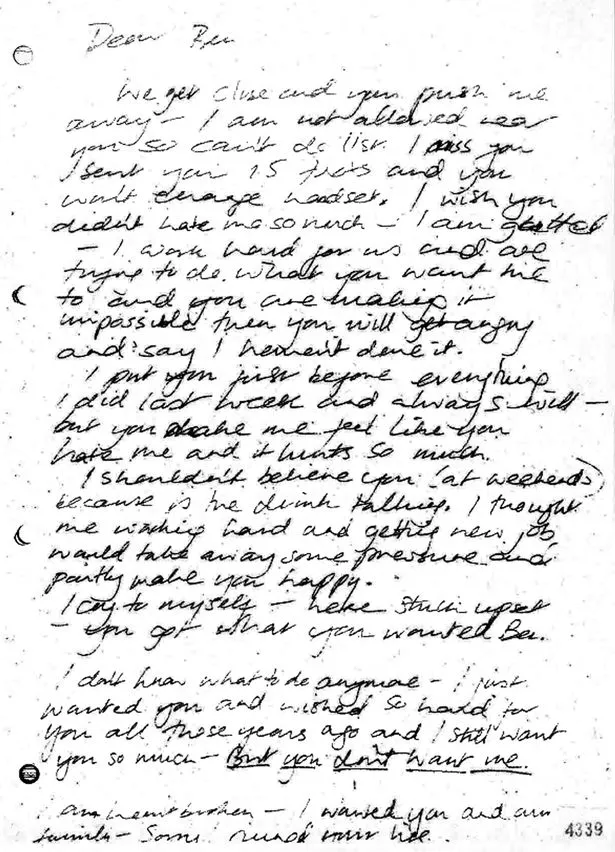 Dear Ben
We get close and you push me
away - I am not allowed near
you so can't do list. I miss you
I sent you 15 texts and you
won't change headset. I wish you
didn't hate me so much - I am gutted
- I work hard for us and are
trying to do what you want me
to and you are making it
impossible then you will get angry
and say I haven't done it.
I put you first before everything
I did last week and always will -
but you make me feel like you
hate me and it hurts so much.
I shouldn't believe you (at weekends)
because is the drink talking. I thought
me working hard and getting new job
would take away some pressure and
partly make you happy.
I cry to myself - here stuck upset
- you got what you wanted Ben.
I don't know what to do anymore - I just
wanted you and wished so hard for
you all those years ago and I still want
you so much - But you don't want me.
I am heartbroken - I wanted you and our
family - Sorry I ruined your life.
4339